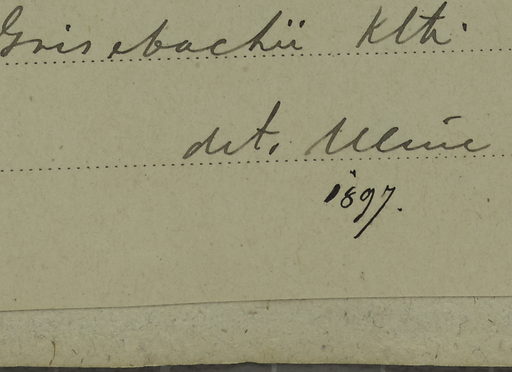 Grisebachii Klth.
det. Uline
1897.